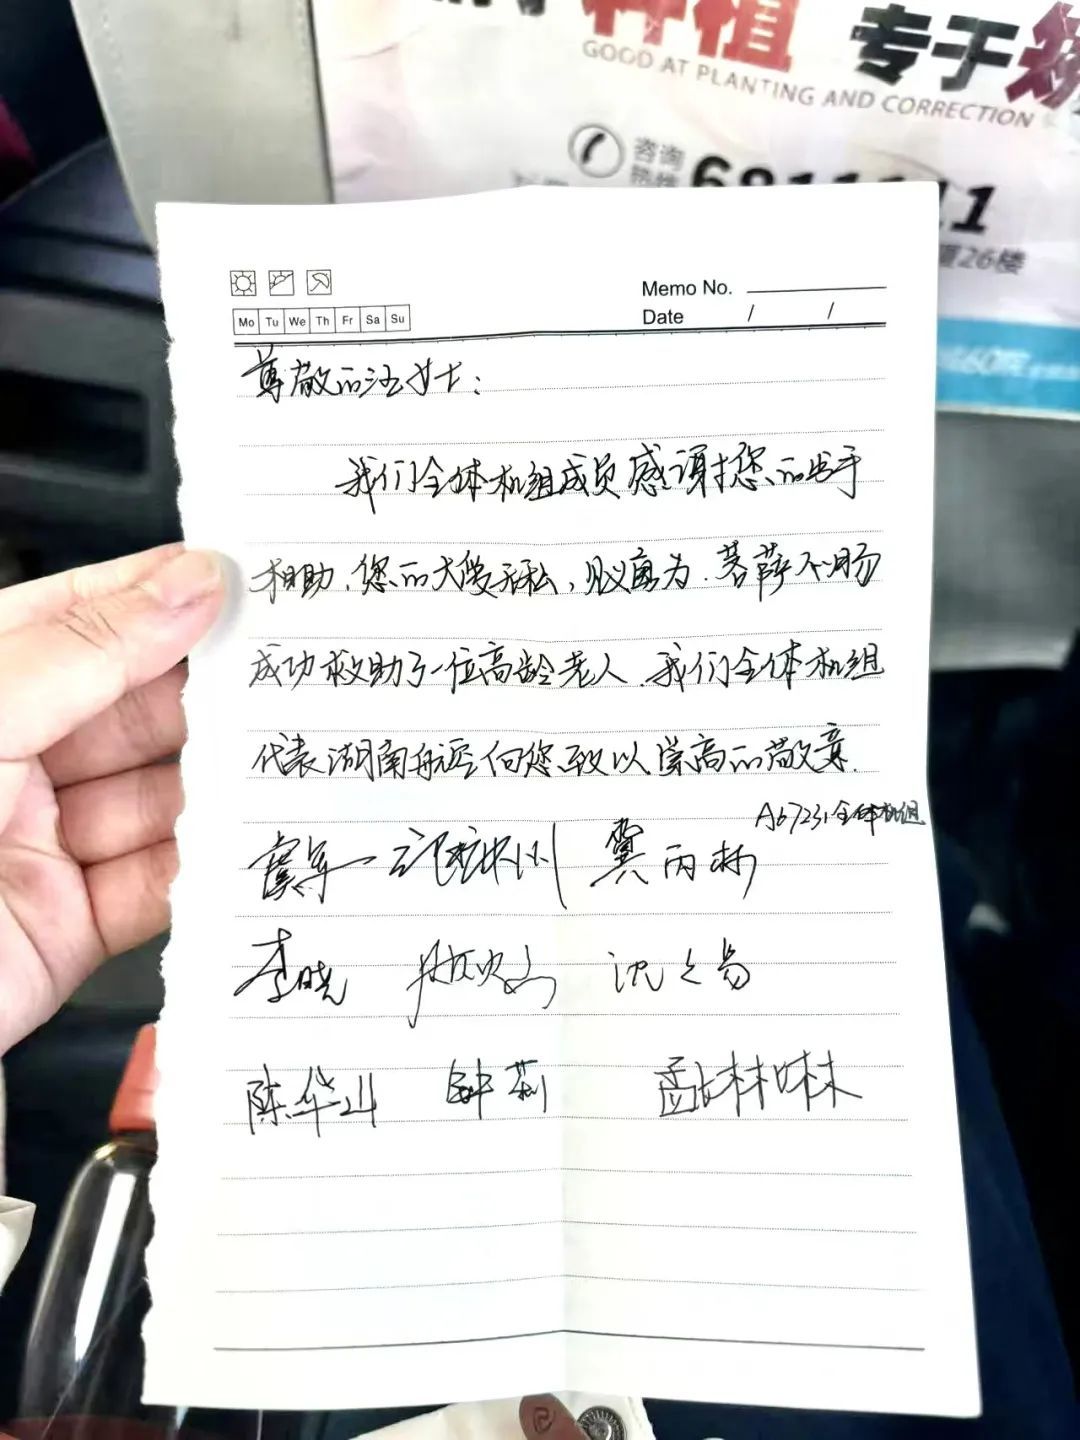 种植 专于
GOOD AT PLANTING AND CORRECTION
咨询
热线
26楼
Memo No.
Mo Tu We Th Fr Sa Su
Date / /
尊敬的汪女士：
我们全体机组成员感谢您的出手
相助、您的大爱无私，见义勇为、菩萨心肠
成功救助了一位高龄老人、我们全体机组
代表湖南航空向您致以崇高的敬意.
A67231全体机组
冀丙彬
李晓 沈之易
陈华山 钟莉 孟林琳